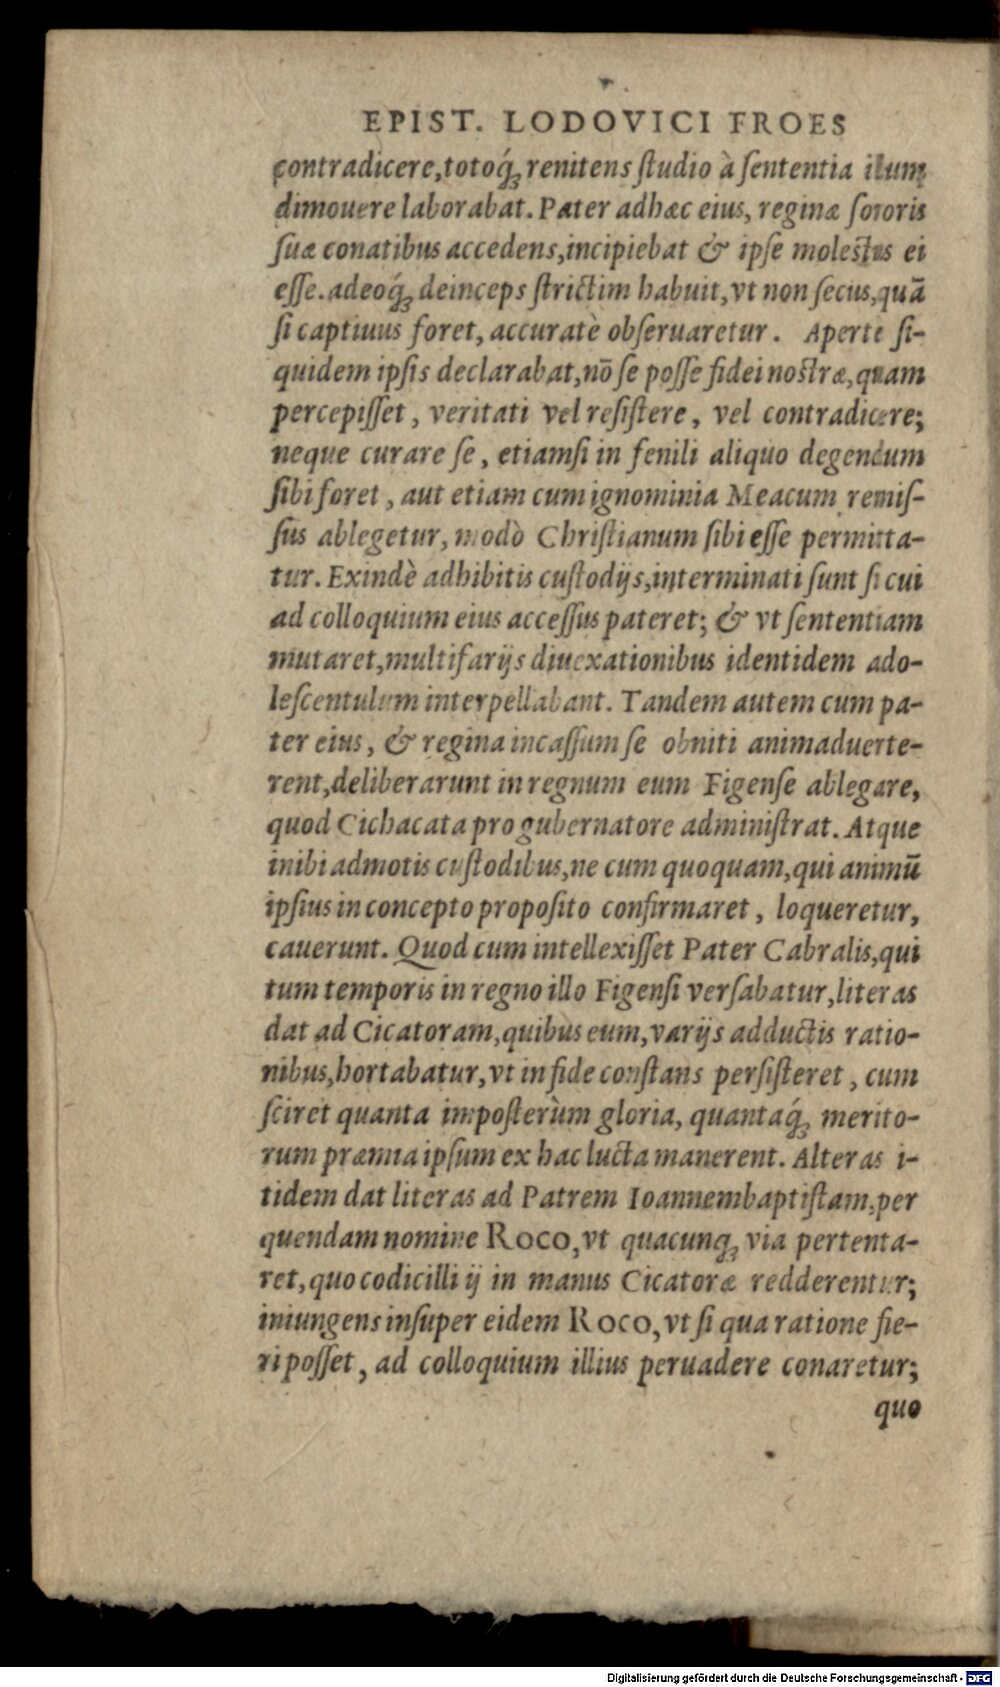 EPIST. LODOVICI FROES
contradicere, totoq́ꝫ renitens ſtudio à ſententia illum
dimouere laborabat. Pater adhæc eius, reginæ ſororis
ſuæ conatibus accedens, incipiebat & ipſe moleſtus ei
eſſe. adeoq́ꝫ deinceps ſtrictim habuit, vt non ſecus, quā
ſi captiuus foret, accuratè obſeruaretur. Aperte ſi-
quidem ipſis declarabat, nō ſe poſſe fidei noſtræ, quam
percepiſſet, veritati vel reſiſtere, vel contradicere;
neque curare ſe, etiamſi in fenili aliquo degendum
ſibi foret, aut etiam cum ignominia Meacum remiſ-
ſus ablegetur, modò Chriſtianum ſibi eſſe permitta-
tur. Exindè adhibitis cuſtodijs, interminati ſunt ſi cui
ad colloquium eius acceſſus pateret; & vt ſententiam
mutaret, multifarijs diuexationibus identidem ado-
leſcentulum interpellabant. Tandem autem cum pa-
ter eius, & regina incaſſum ſe obniti animaduerte-
rent, deliberarunt in regnum eum Figenſe ablegare,
quod Cichacata pro gubernatore adminiſtrat. Atque
inibi admotis cuſtodibus, ne cum quoquam, qui animū
ipſius in concepto propoſito confirmaret, loqueretur,
cauerunt. Quod cum intellexiſſet Pater Cabralis, qui
tum temporis in regno illo Figenſi verſabatur, literas
dat ad Cicatoram, quibus eum, varijs adductis ratio-
nibus, hortabatur, vt in fide conſtans perſiſteret, cum
ſciret quanta impoſterùm gloria, quantaq́ꝫ merito-
rum præmia ipſum ex hac lucta manerent. Alteras i-
tidem dat literas ad Patrem Ioannembaptiſtam, per
quendam nomine Roco, vt quacunqꝫ via pertenta-
ret, quo codicilli ij in manus Cicatoræ redderentur;
iniungens inſuper eidem Roco, vt ſi qua ratione fie-
ri poſſet, ad colloquium illius peruadere conaretur;
quo
Digitalisierung gefördert durch die Deutsche Forschungsgemeinschaft - DFG